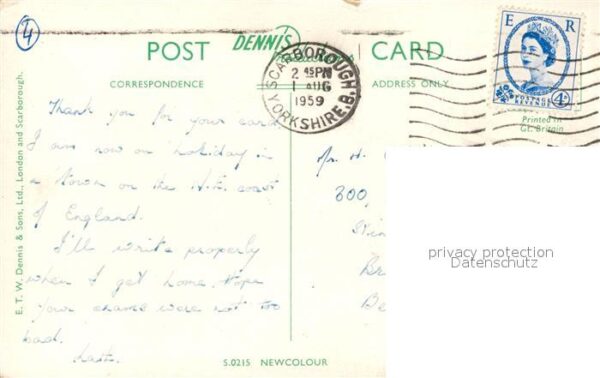 4
POST DENNIS CARD
CORRESPONDENCE
ADDRESS ONLY
SCARBOROUGH.
2 45PM
1 AUG
1959
YORKSHIRE.B.
E R
POSTAGE
REVENUE
4D
Printed in
Gt. Britain
E. T. W. Dennis & Sons, Ltd., London and Scarborough.
Thank you for your card
I am now on holiday in
a town on the N.E. coast
of England.
I'll write properly
when I get home. Hope
your exams were not too
bad.
H.
300,
privacy protection
Datenschutz
S.0215 NEWCOLOUR